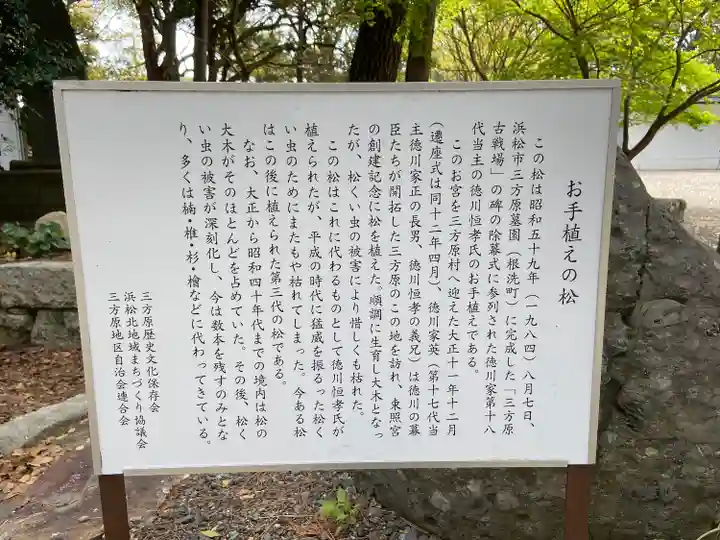 お手植えの松
この松は昭和五十九年（一九八四）八月七日、
浜松市三方原墓園（根洗町）に完成した「三方原
古戦場」の碑の除幕式に参列された徳川家第十八
代当主の徳川恒孝氏のお手植えである。
このお宮を三方原村へ迎えた大正十一年十二月
（遷座式は同十二年四月）、徳川家英（第十七代当
主徳川家正の長男、徳川恒孝の義兄）は徳川の幕
臣たちが開拓した三方原のこの地を訪れ、東照宮
の創建記念に松を植えた。順調に生育し大木となっ
たが、松くい虫の被害により惜しくも枯れた。
この松はこれに代わるものとして徳川恒孝氏が
植えられたが、平成の時代に猛威を振るった松く
い虫のためにまたもや枯れてしまった。今ある松
はこの後に植えられた第三代の松である。
なお、大正から昭和四十年代までの境内は松の
大木がそのほとんどを占めていた。その後、松く
い虫の被害が深刻化し、今は数本を残すのみとな
り、多くは楠・椎・杉・檜などに代わってきている。
三方原歴史文化保存会
浜松北地域まちづくり協議会
三方原地区自治会連合会